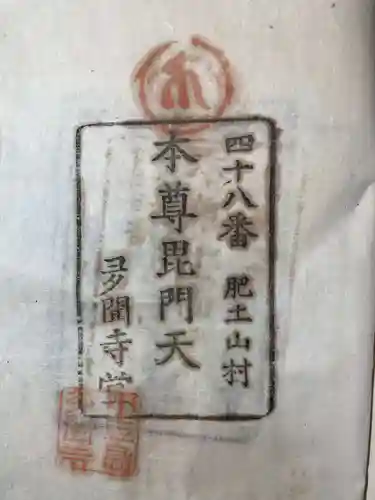 四十八番 肥土山村
本尊毘門天
多聞寺堂